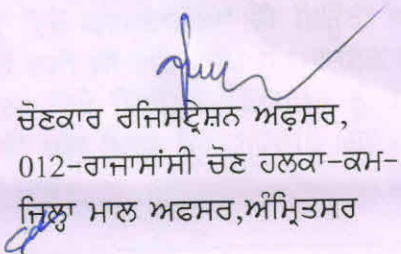 ਚੋਣਕਾਰ ਰਜਿਸਟ੍ਰੇਸ਼ਨ ਅਫ਼ਸਰ,
012-ਰਾਜਾਸਾਂਸੀ ਚੋਣ ਹਲਕਾ-ਕਮ-
ਜ਼ਿਲ੍ਹਾ ਮਾਲ ਅਫਸਰ,ਅੰਮ੍ਰਿਤਸਰ